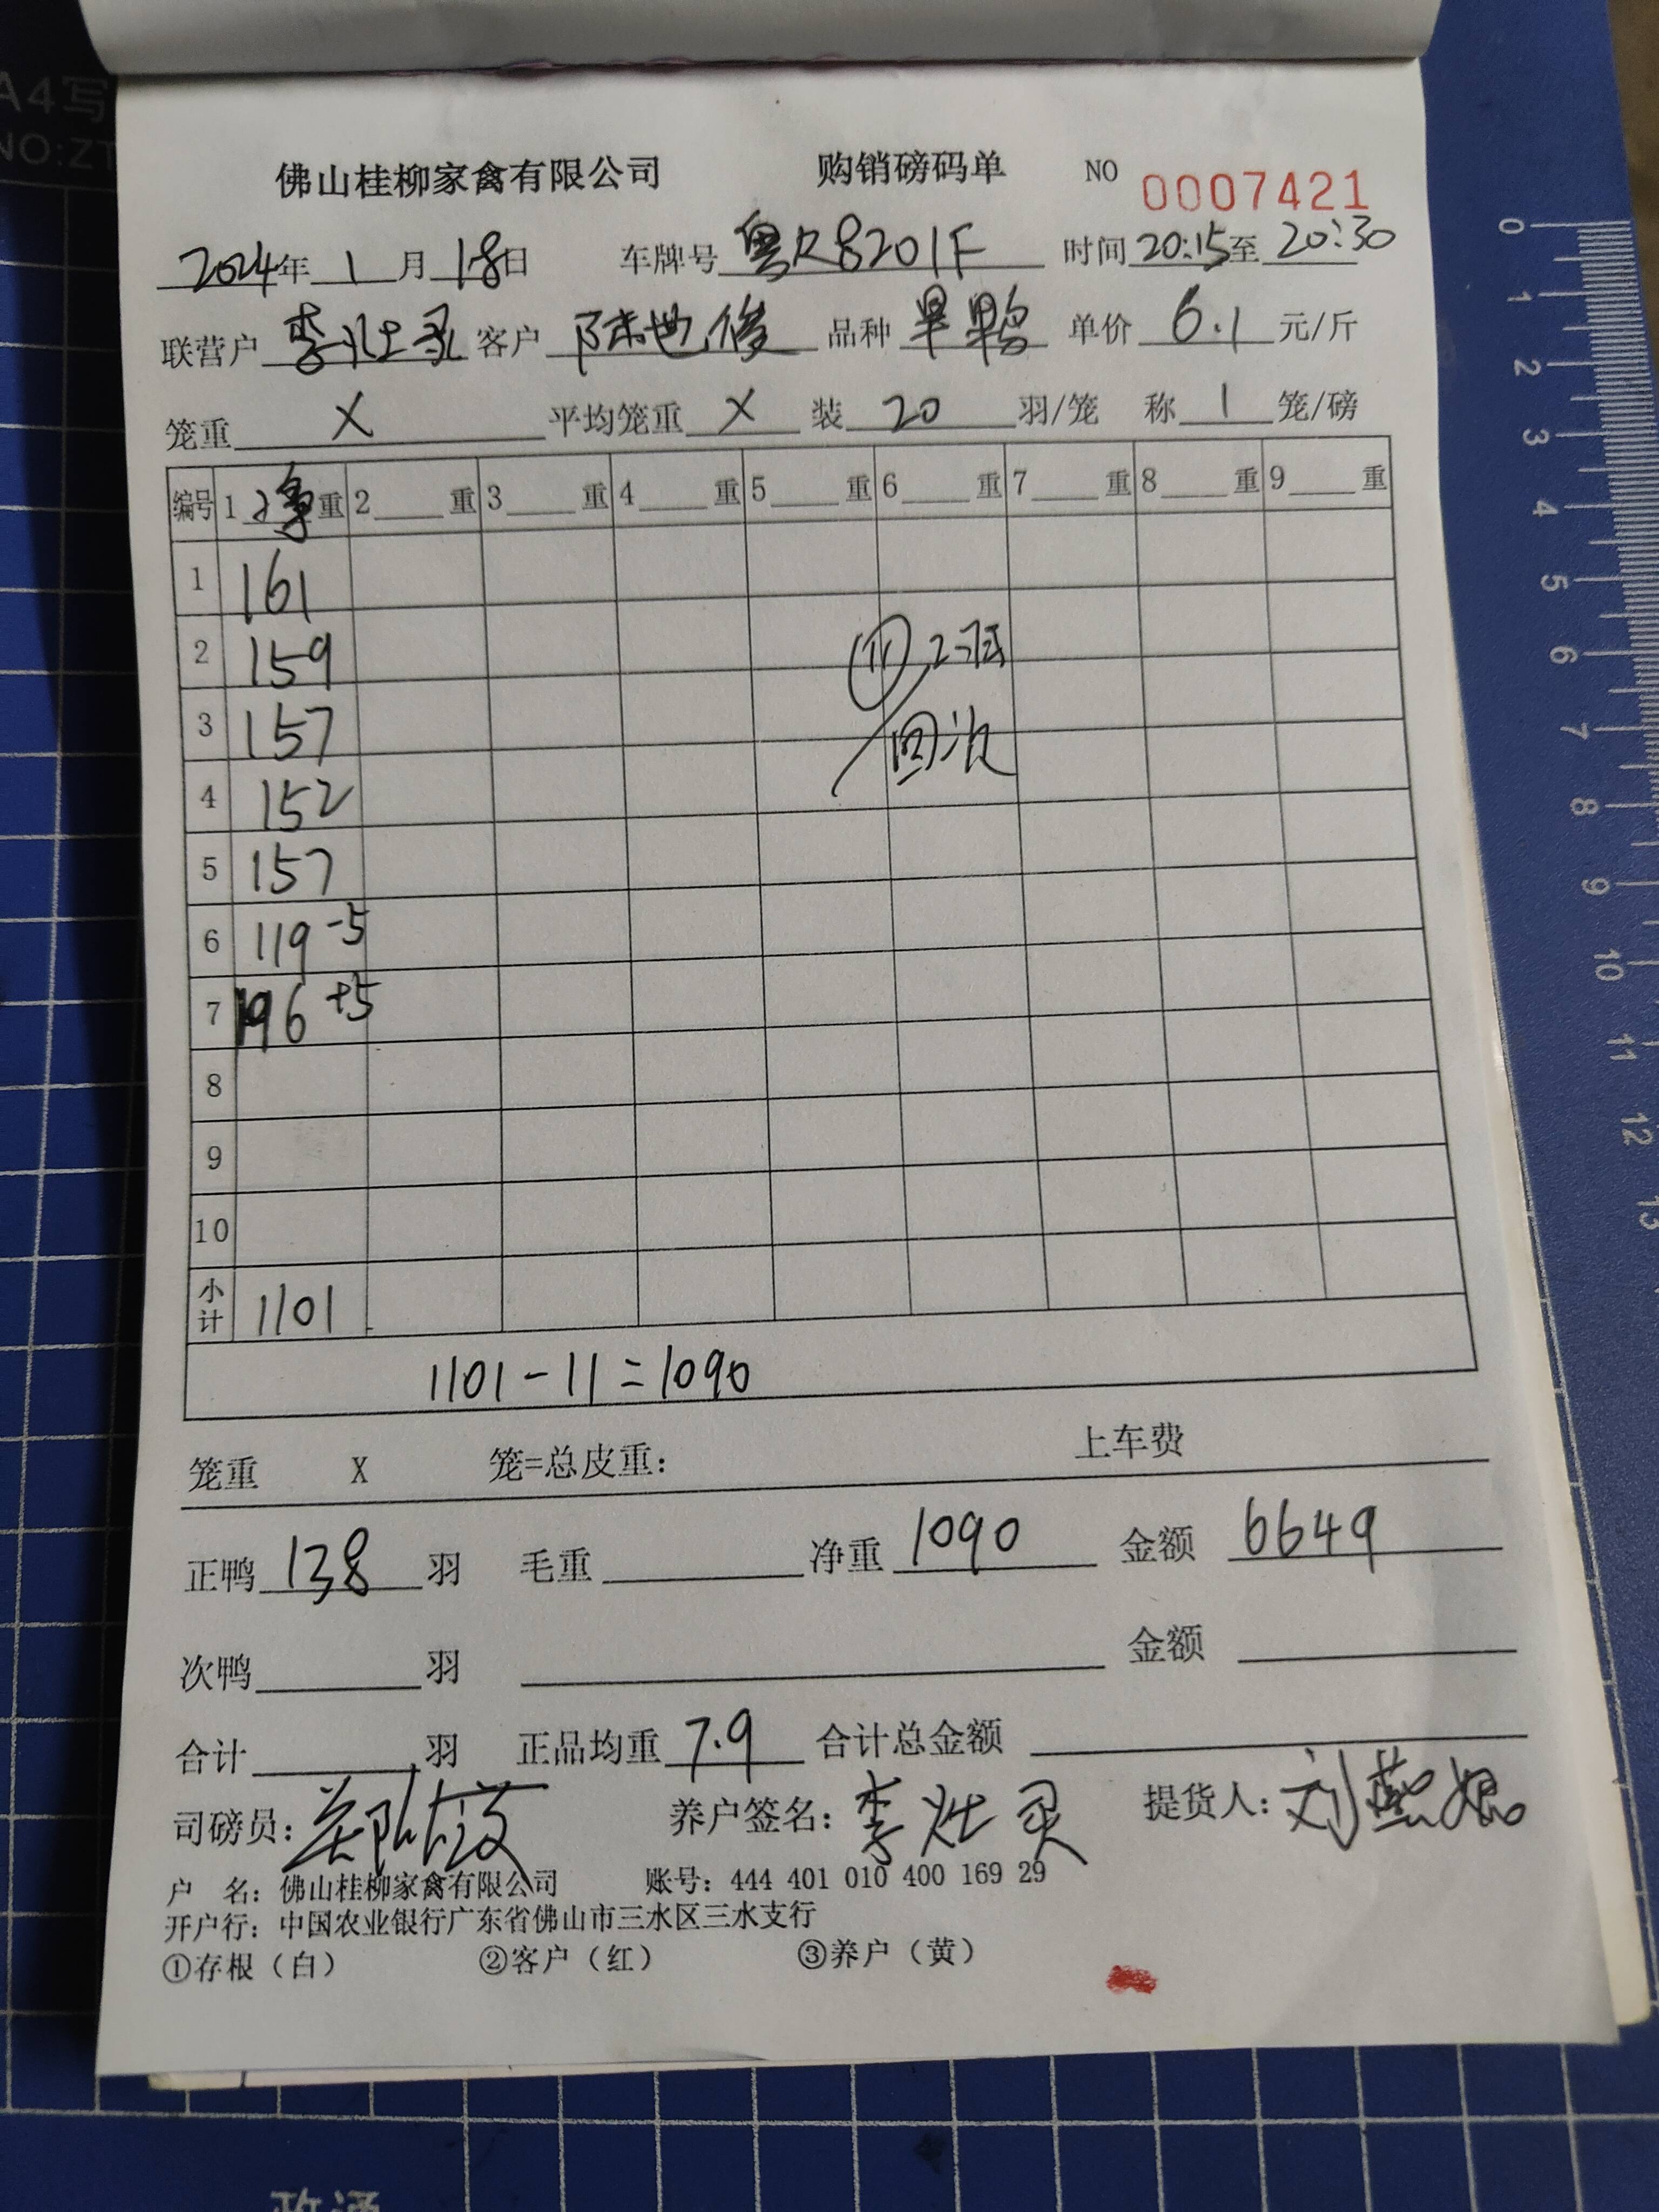 A4写
NO:ZT
佛山桂柳家禽有限公司 购销磅码单 NO 0007421
2024年1月18日 车牌号 粤R8201F 时间20:15至20:30
联营户 李灶 客户 陆世俊 品种 旱鸭 单价 6.1 元/斤
笼重 X 平均笼重 X 装 20 羽/笼 称 1 笼/磅
编号 1 净 重 2 重 3 重 4 重 5 重 6 重 7 重 8 重 9 重
1 161
2 159
3 157
4 152
5 157
6 119 -5
7 196 +5
8
9
10
小计 1101
11
回次
1101-11=1090
笼重 X 笼=总皮重: 上车费
正鸭 138 羽 毛重 净重 1090 金额 6649
次鸭 羽 金额
合计 羽 正品均重 7.9 合计总金额
司磅员: 养户签名: 李灶 提货人: 刘燕
户 名: 佛山桂柳家禽有限公司 账号: 444 401 010 400 169 29
开户行: 中国农业银行广东省佛山市三水区三水支行
①存根(白) ②客户(红) ③养户(黄)
0
1
2
3
4
5
6
7
8
9
10
11
12
13